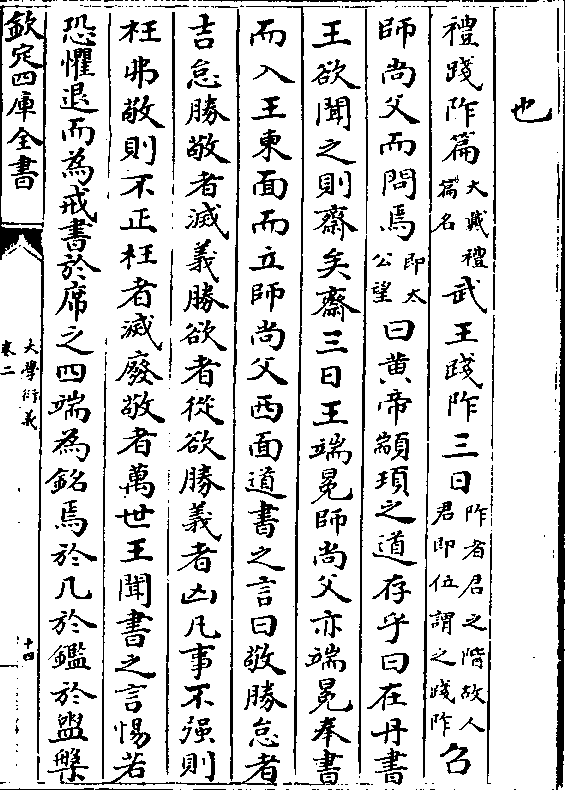 也
禮踐阼篇大戴禮篇名武王踐阼三日阼者君之階故人君即位謂之踐阼召
師尚父而問焉即太公望曰黄帝顓頊之道存乎曰在丹書
王欲聞之則齋矣齋三日王端冕師尚父亦端冕奉書
而入王東面而立師尚父西面道書之言曰敬勝怠者
吉怠勝敬者滅義勝欲者從欲勝義者凶凡事不强則
枉弗敬則不正枉者滅廢敬者萬世王聞書之言惕若
恐懼退而為戒書於席之四端為銘焉於几於鑑於盥槃
欽定四庫全書
大學衍義
卷二
十四